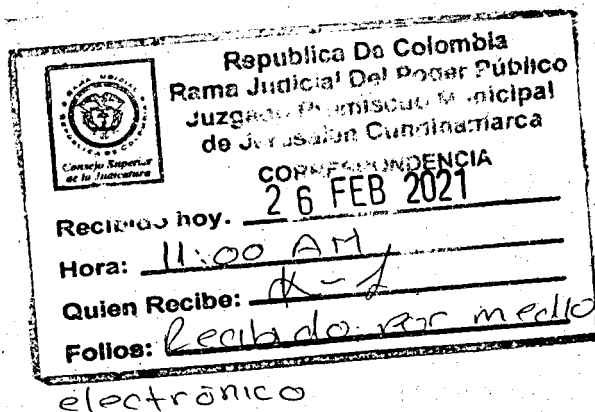 Republica De Colombia
Rama Judicial Del Poder Público
Juzgado Promiscuo Municipal
de Jerusalen Cundinamarca
Consejo Superior
de la Judicatura
CORRESPONDENCIA
26 FEB 2021
Recibido hoy.
Hora: 11:00 AM
Quien Recibe:
Folios: Recibido por medio
electrónico